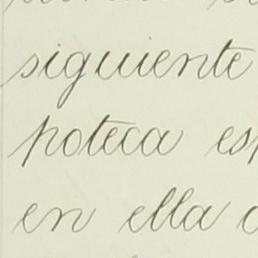 siguiente
poteca es
en ella